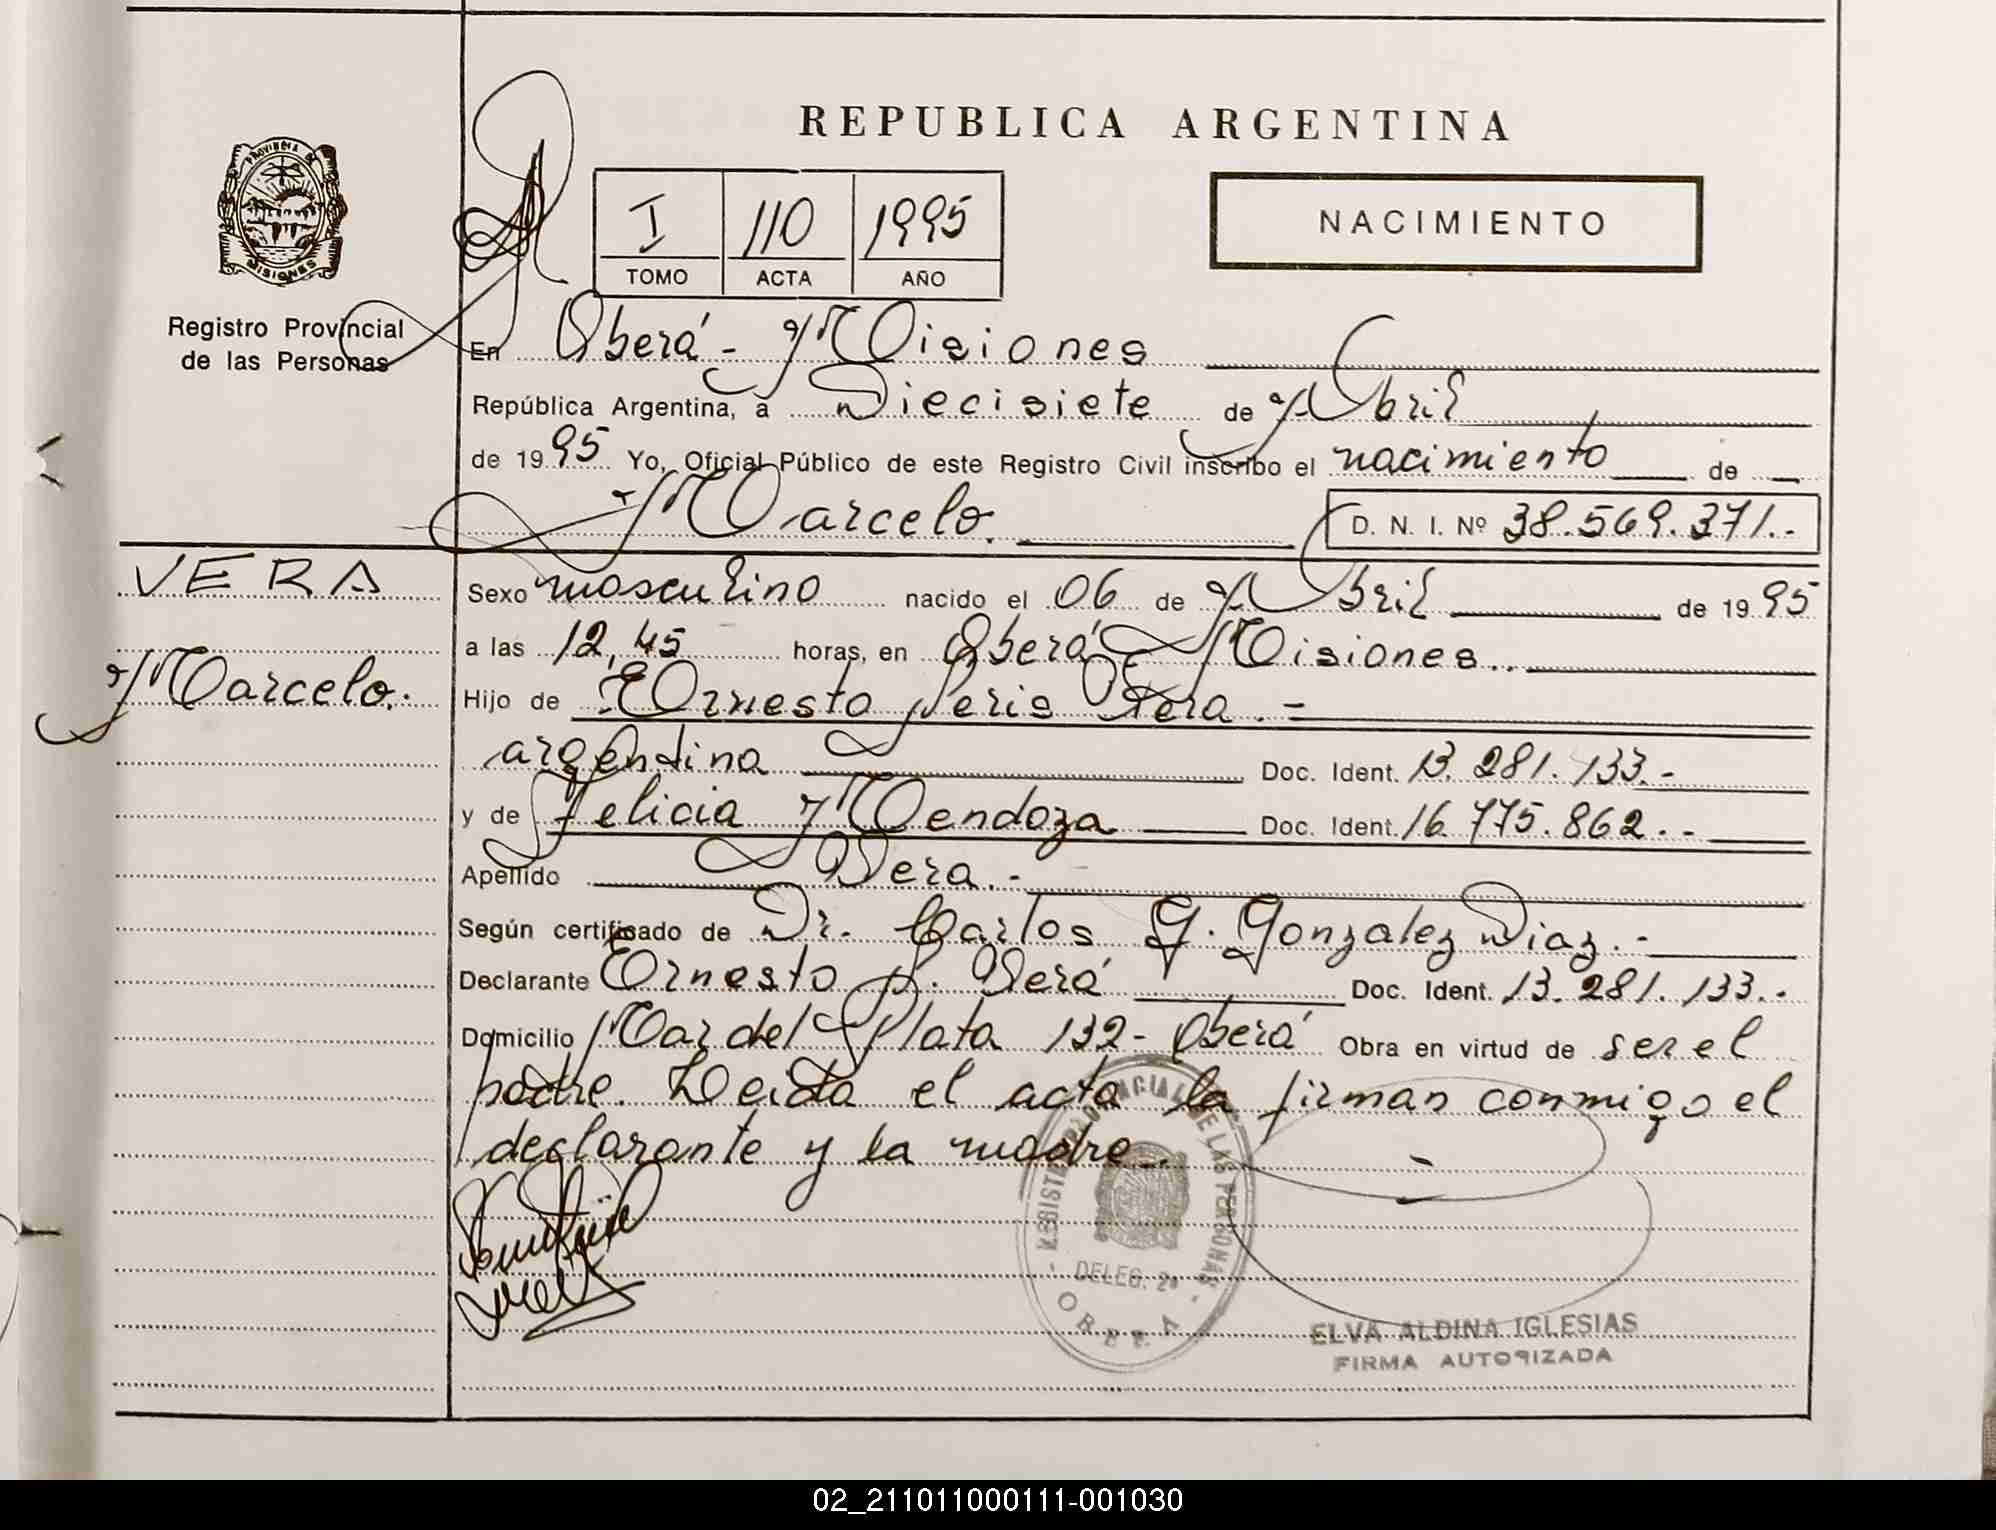 REPUBLICA ARGENTINA
PROVINCIA DE
MISIONES
Registro Provincial
de las Personas
I 110 1995
TOMO ACTA AÑO
NACIMIENTO
En Oberá - Misiones
República Argentina, a Diecisiete de Abril
de 1995 Yo, Oficial Público de este Registro Civil inscribo el nacimiento de
Marcelo.
D. N. I. Nº 38.569.371.-
VERA
Marcelo.
Sexo masculino nacido el 06 de Abril de 1995
a las 12,45 horas, en Oberá Misiones..
Hijo de Ernesto Peris Vera.-
argentina Doc. Ident. 13.281.133.-
y de Felicia Mendoza Doc. Ident. 16.775.862.-
Apellido Vera.-
Según certificado de Dr. Carlos G. Gonzalez Diaz.-
Declarante Ernesto P. Verá Doc. Ident. 13.281.133.-
Domicilio Mar del Plata 132- Oberá Obra en virtud de ser el
padre. Leida el acta la firman conmigo el
declarante y la madre.-
REGISTRO PROVINCIAL DE LAS PERSONAS
DELEG. 2ª
OBERA
ELVA ALDINA IGLESIAS
FIRMA AUTORIZADA
02_211011000111-001030